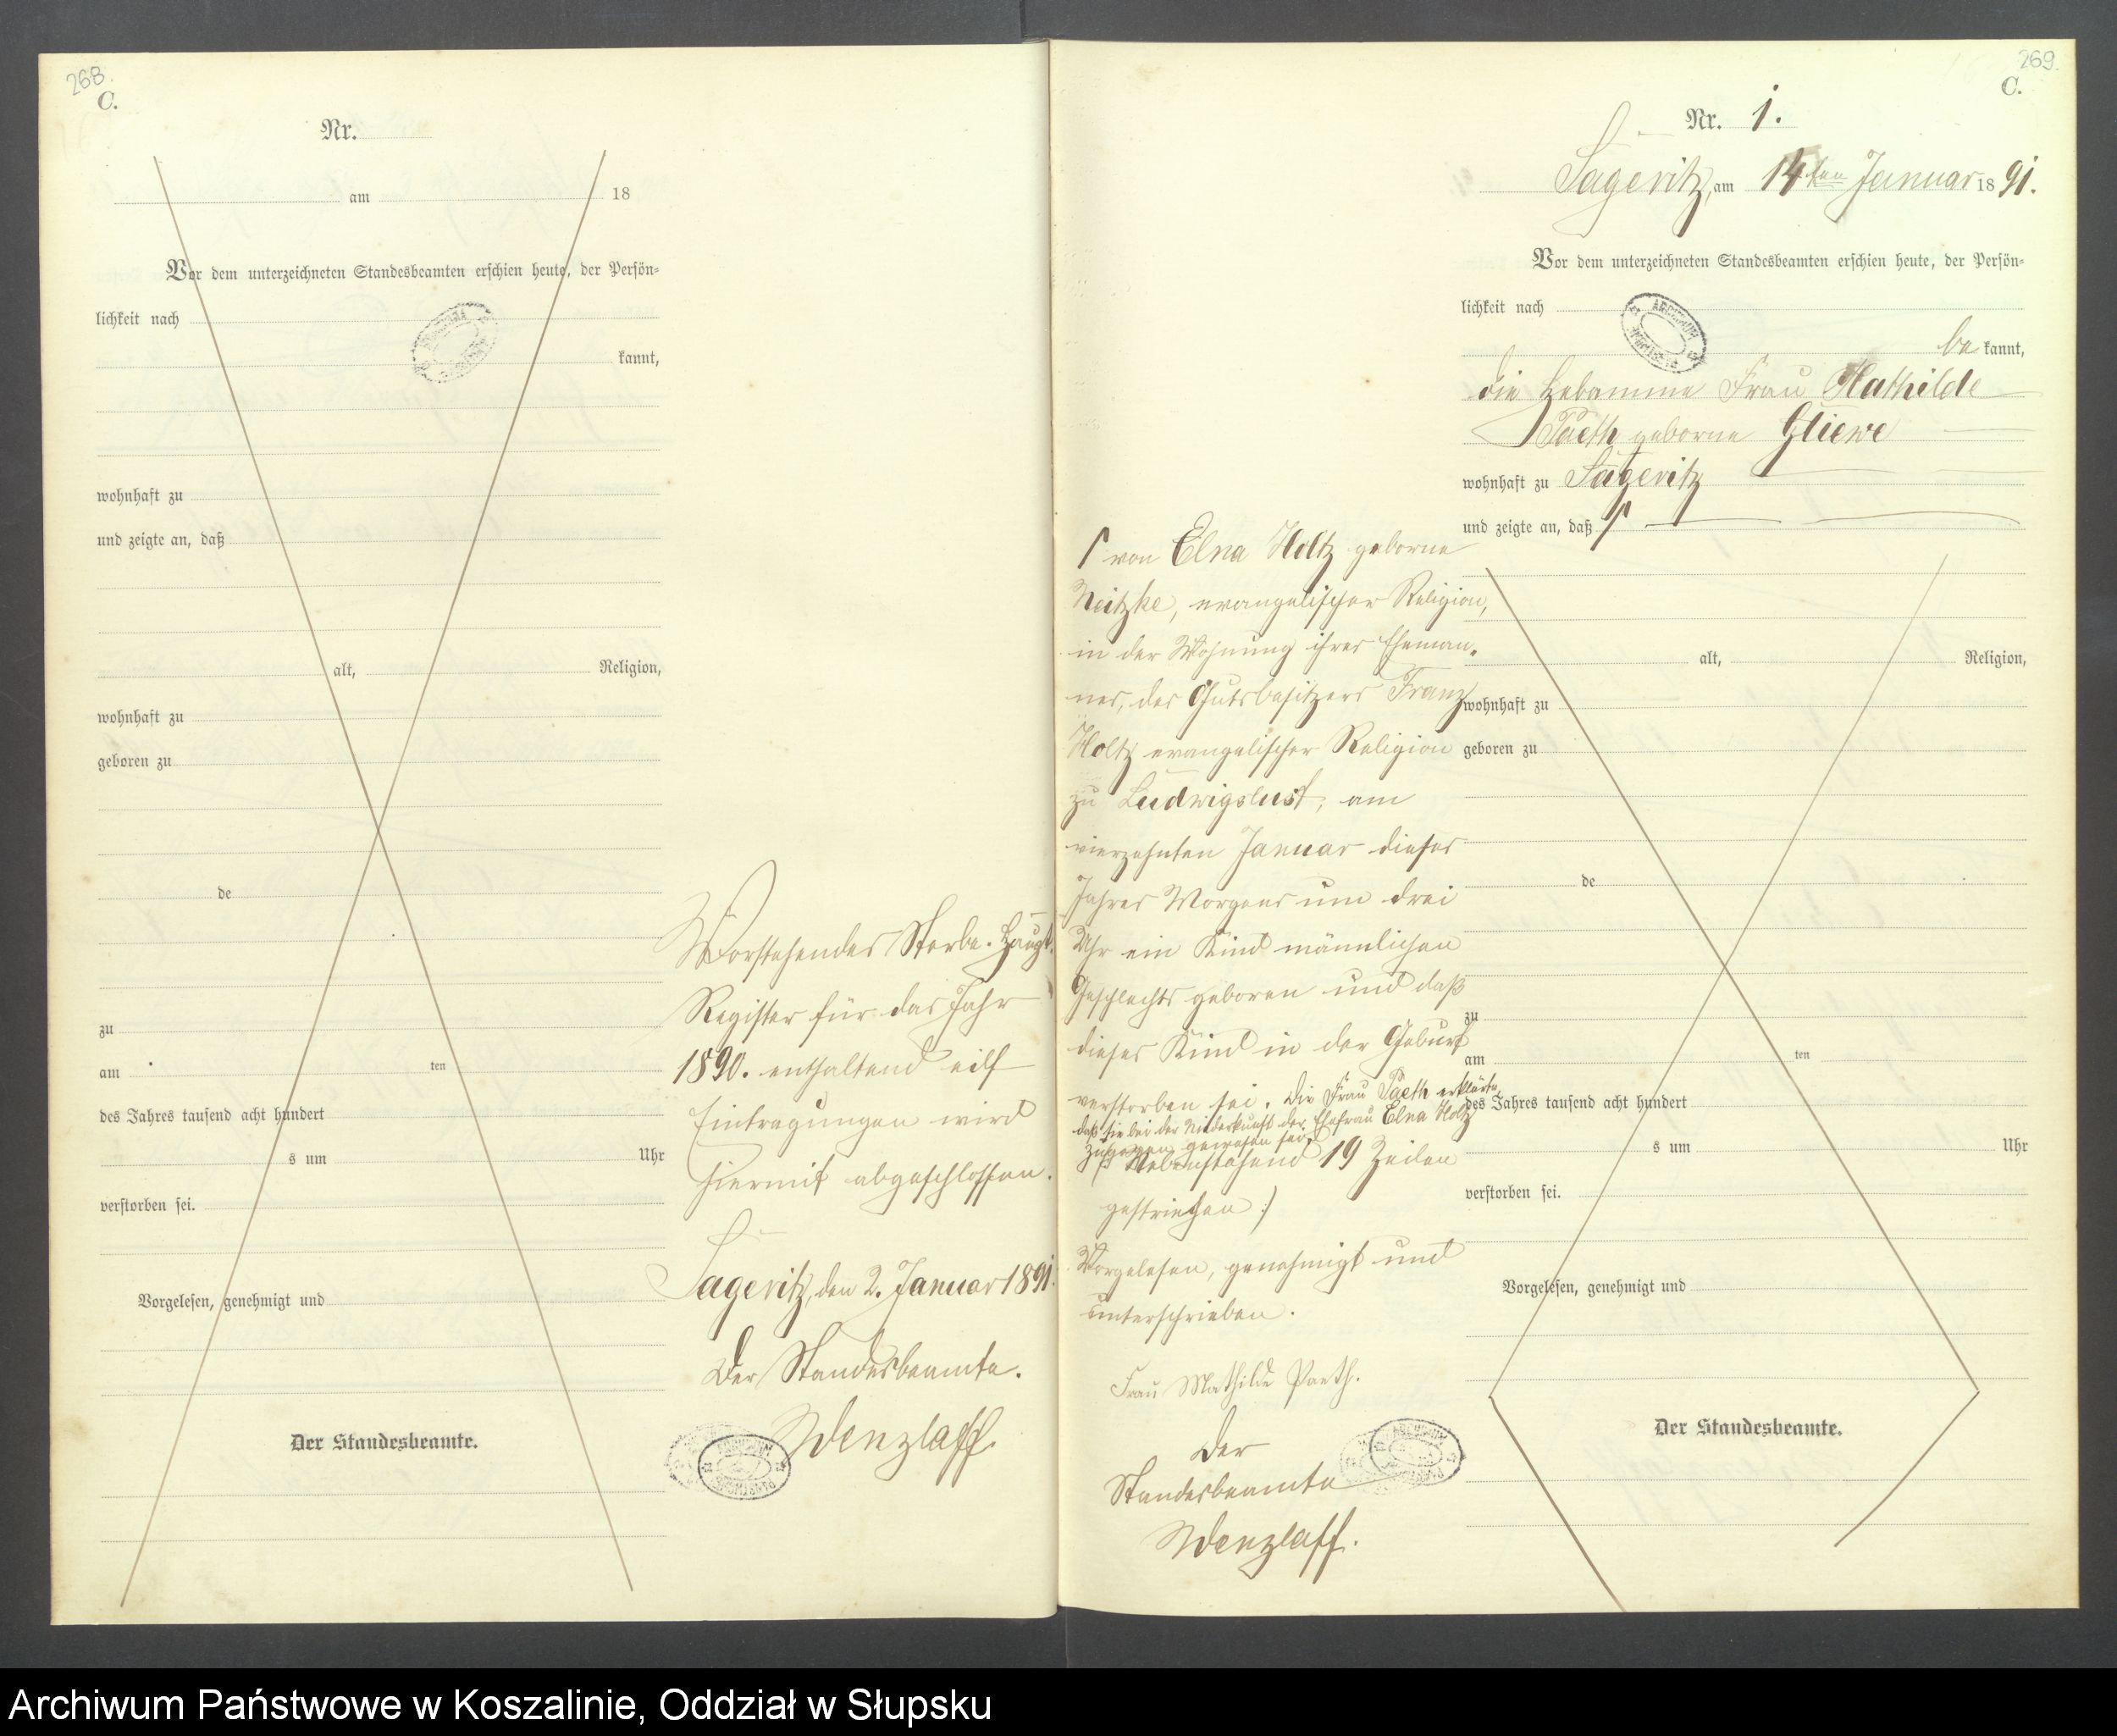 268.
C.
Nr.
am 18
Vor dem unterzeichneten Standesbeamten erschien heute, der Persön=
lichkeit nach
kannt,
wohnhaft zu
und zeigte an, daß
alt, Religion,
wohnhaft zu
geboren zu
de
zu
am ten
des Jahres tausend acht hundert
s um Uhr
verstorben sei.
Vorgelesen, genehmigt und
Der Standesbeamte.
Vorstehendes Sterbe-Haupt-
Register für das Jahr
1890. enthaltend eilf
Eintragungen wird
hiermit abgeschlossen.
Sageritz, den 2. Januar 1891.
Der Standesbeamte.
Wenzlaff.
269.
C.
Nr. 1.
Sageritz, am 14ten Januar 1891.
Vor dem unterzeichneten Standesbeamten erschien heute, der Persön=
lichkeit nach
be kannt,
die Hebamme Frau Mathilde
Paeth geborne Gliewe
wohnhaft zu Sageritz
und zeigte an, daß
von Elna Holtz geborne
Neitzke, evangelischer Religion,
in der Wohnung ihres Eheman-
nes, des Gutsbesitzers Franz
Holtz evangelischer Religion
zu Ludwigslust, am
vierzehnten Januar dieses
Jahres Morgens um drei
Uhr ein Kind männlichen
Geschlechts geboren und daß
dieses Kind in der Geburt
verstorben sei. Die Frau Paeth erklärte,
daß sie bei der Niederkunft der Ehefrau Elna Holtz
zugegen gewesen sei.
Nebenstehend 19 Zeilen
gestrichen
Vorgelesen, genehmigt und
unterschrieben.
Frau Mathilde Paeth.
Der
Standesbeamte
Wenzlaff.
alt, Religion,
wohnhaft zu
geboren zu
de
zu
am ten
des Jahres tausend acht hundert
s um Uhr
verstorben sei.
Vorgelesen, genehmigt und
Der Standesbeamte.
Archiwum Państwowe w Koszalinie, Oddział w Słupsku